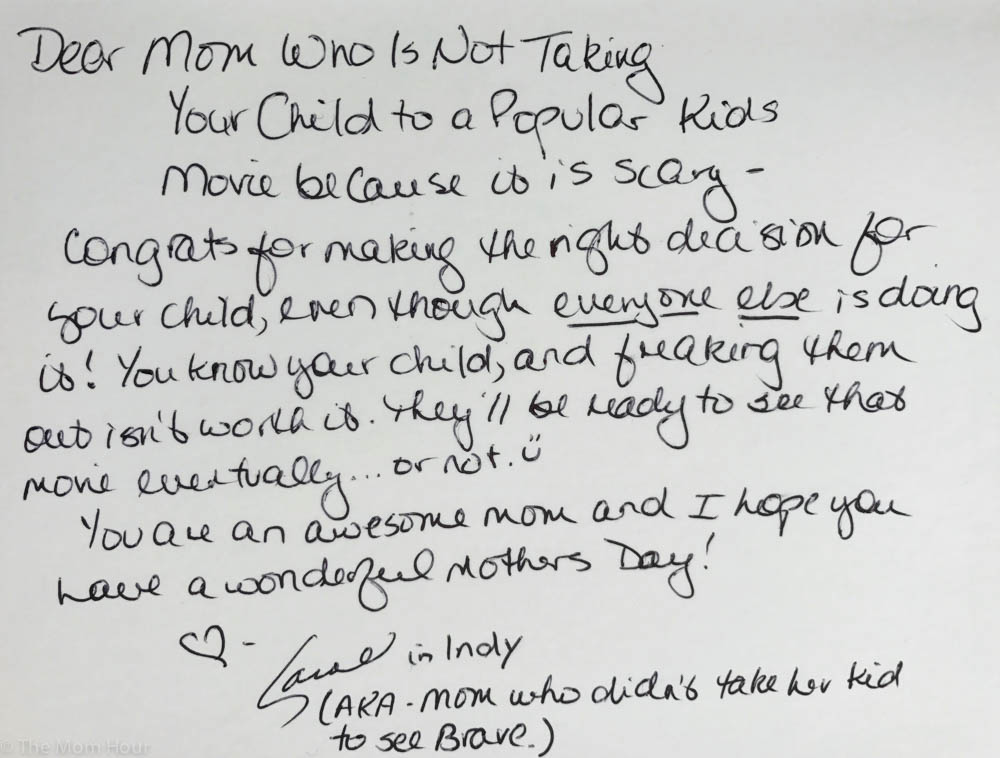 Dear Mom Who Is Not Taking
Your Child to a Popular Kids
Movie because it is scary -
Congrats for making the right decision for
your child, even though everyone else is doing
it! You know your child, and freaking them
out isn't worth it. They'll be ready to see that
movie eventually... or not. ü
You are an awesome mom and I hope you
have a wonderful Mothers Day!
♡- Sarah in Indy
(AKA - Mom who didn't take her kid
to see Brave.)
© The Mom Hour